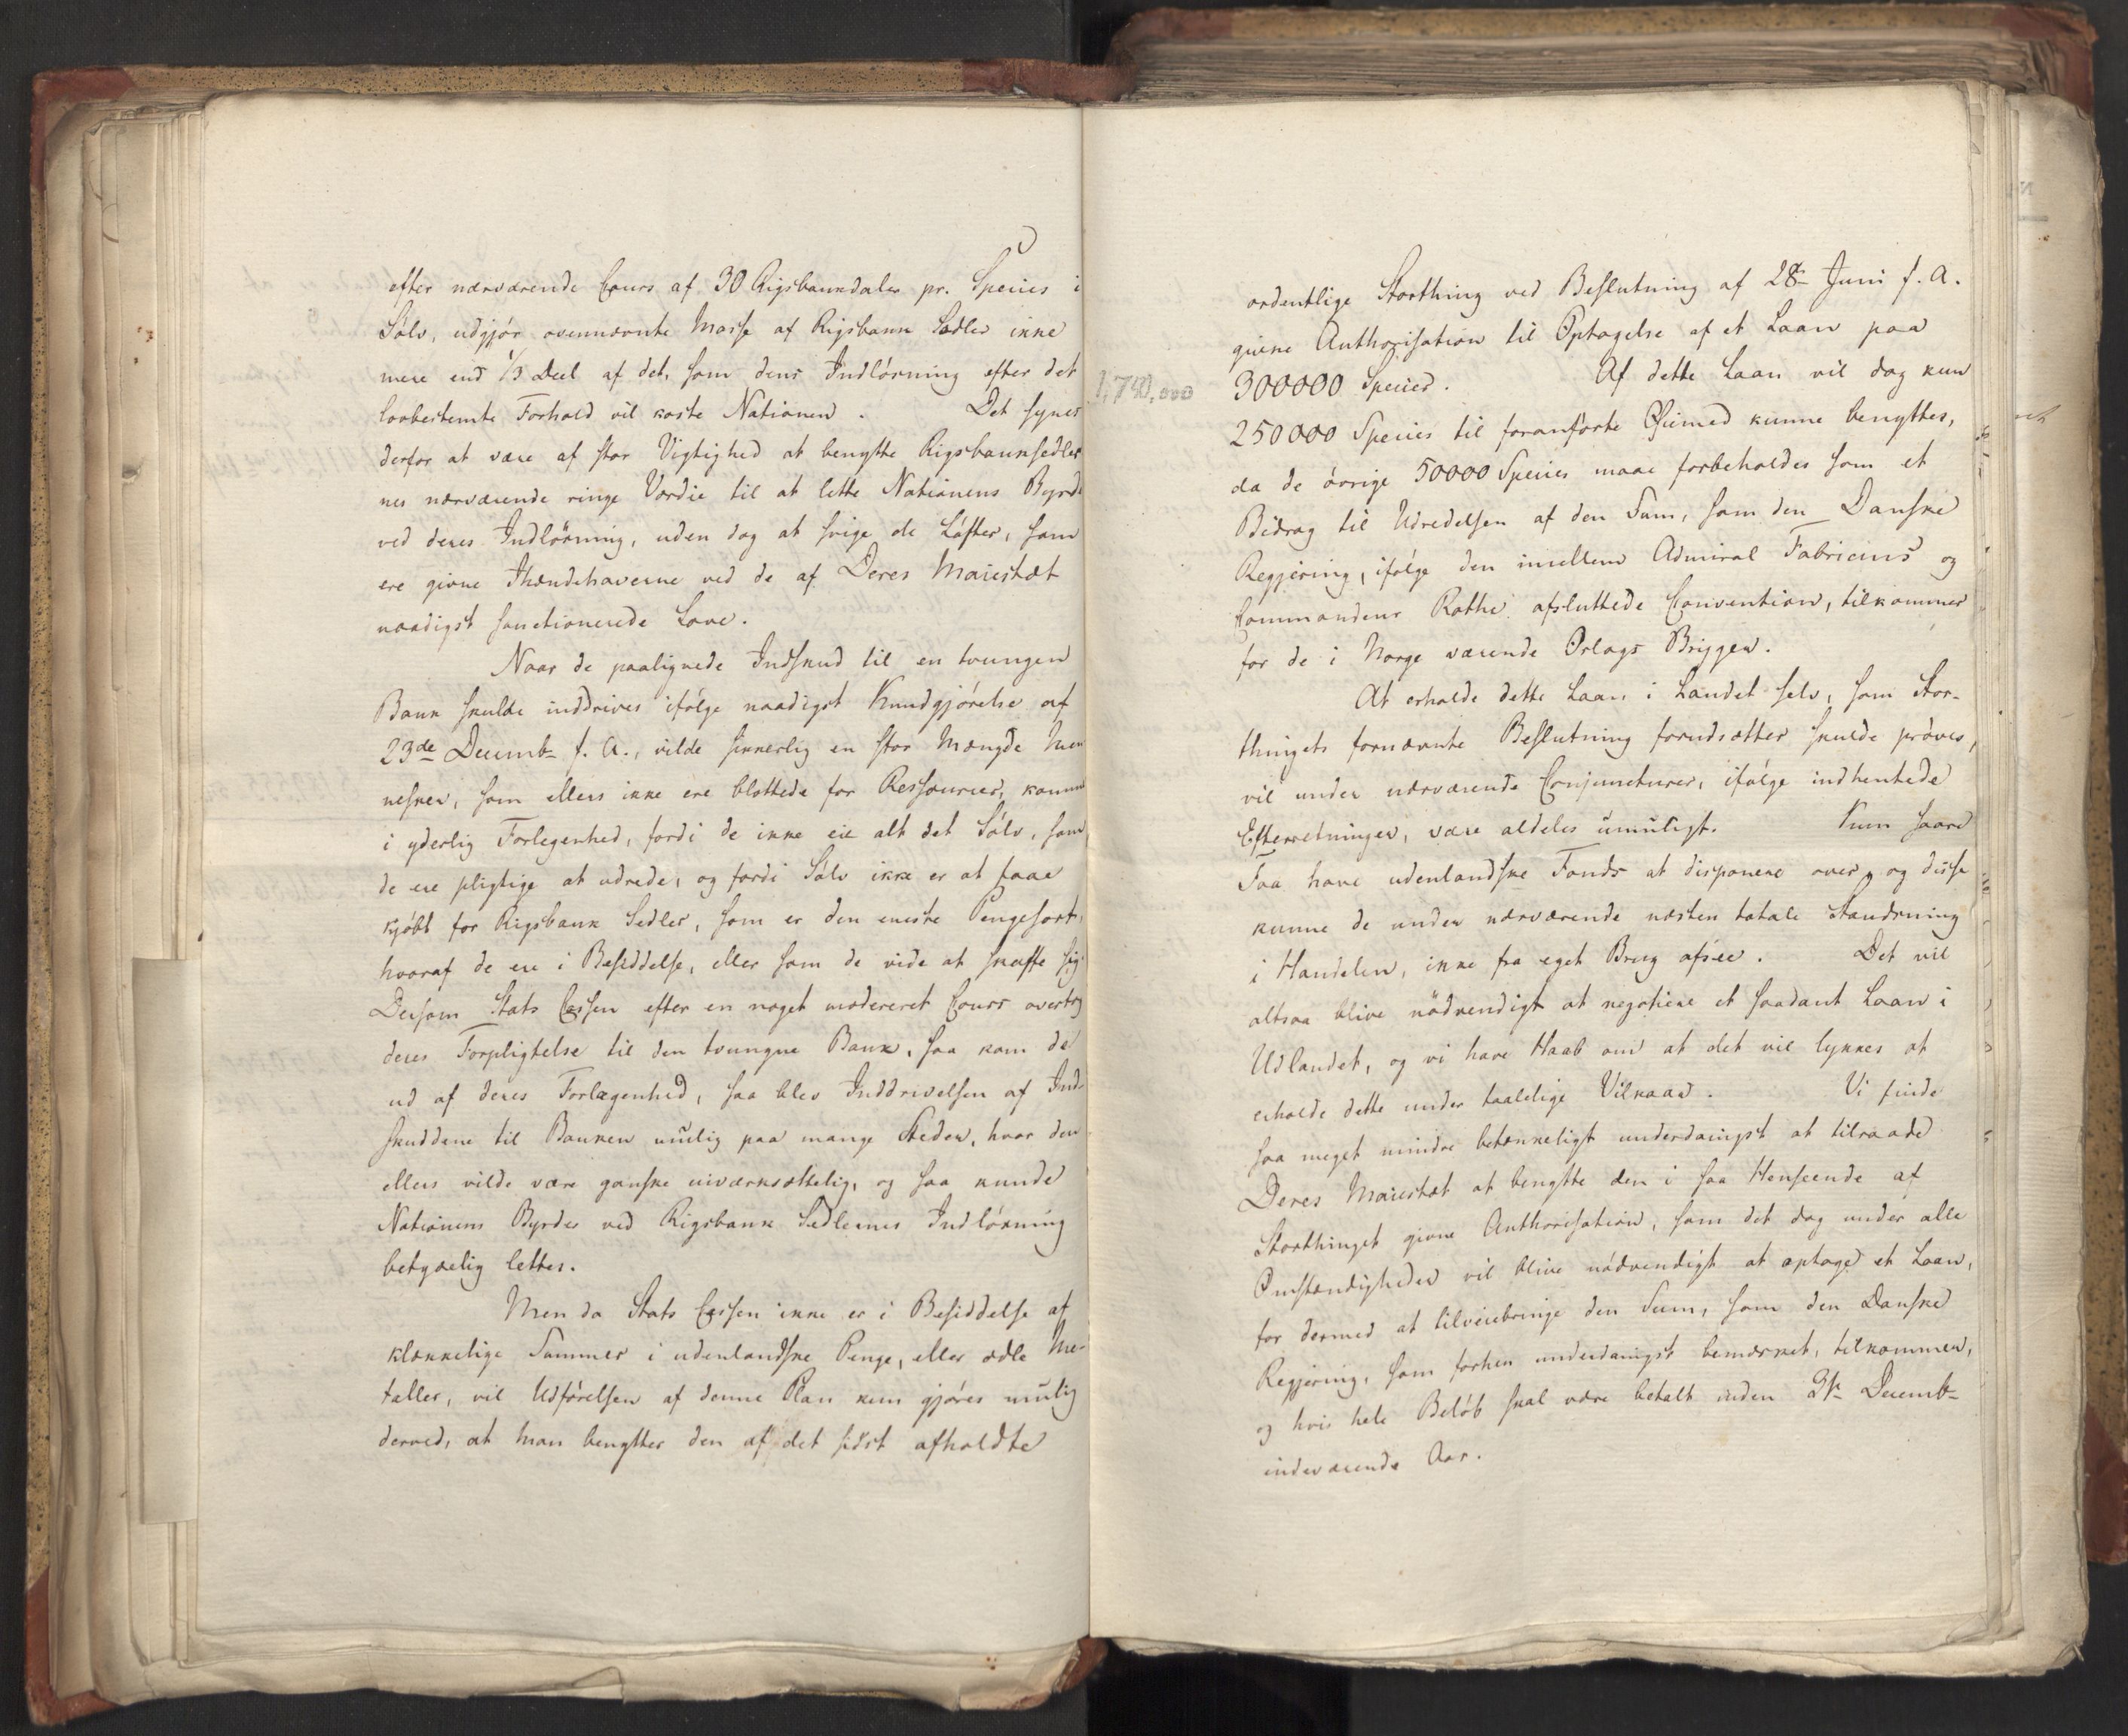 efter nærværende Cours af 30 Rigsbankdaler pr. Species i
Sölv, udgjør ovennævnte Masse af Rigsbank Sedler ikke
mere end 1/3 Deel af det, som dens Indlösning efter det
lovbestemte Forhold vil koste Nationen. Det synes
derfor at være af stor Vigtighed at benytte Rigsbanksedler
nes nærværende ringe Værdie til at lette Nationens Byrde
ved deres Indlösning, uden dog at svige de Löfter, som
ere givne Ihændehaverne ved de af Deres Maiestæt
naadigst sanctionerede Love.
Naar de paalignede Indskud til en tvungen
Bank skulde inddrives ifölge naadigst Kundgjörelse af
23de Decemb f. A., vilde sikkerlig en stor Mængde Men
nesker, som ellers ikke ere blottede for Ressourcer, komme
i yderlig Forlegenhed, fordi de ikke eie alt det Sölv, som
de ere pligtige at udrede, og fordi Sölv ikke er at faae
kjöbt for Rigsbank Sedler, som er den eneste Pengesort,
hvoraf de ere i Besiddelse, eller som de vide at skaffe sig.
Dersom Stats Cassen efter en noget modereret Cours overtog
deres Forpligtelse til den tvungne Bank, saa kom de
ud af deres Forlægenhed, saa blev Inddrivelsen af Ind-
skuddene til Banken mulig paa mange Steder, hvor den
ellers vilde være ganske uiværksættelig, og saa kunde
Nationens Byrder ved Rigsbank Sedlernes Indlösning
betydelig lettes.
Men da Stats Cassen ikke er i Besiddelse af
klækkelige Summer i udenlandske Penge, eller ædle Me-
taller, vil Udförelsen af denne Plan kun gjöres mulig
derved, at man benytter den af det sidst afholdte
1,740,000
ordentlige Storthing ved Beslutning af 28 Juni f. A.
givne Authorisation til Optagelse af et Laan paa
300000 Species. Af dette Laan vil dog kun
250000 Species til foranförte Öiemed kunne benyttes,
da de övrige 50000 Species maae forbeholdes som et
Bidrag til Udredelsen af den Sum, som den Danske
Regjering, ifölge den imellem Admiral Fabricius og
Commandeur Rothe afsluttede Convention, tilkommer
for de i Norge værende Orlogs Brigger.
At erholde dette Laan i Landet selv, som Stor-
thingets fornævnte Beslutning forudsætter skulde pröves,
vil under nærværende Conjuncturer, ifölge indhentede
Efterretninger, være aldeles umuligt. Kun saare
Faa have udenlandske Fonds at disponere over, og disse
kunne de under nærværende næsten totale Standsning
i Handelen, ikke fra eget Brug afsee. Det vil
altsaa blive nödvendigt at negotiere et saadant Laan i
Udlandet, og vi have Haab om at det vil lykkes at
erholde dette under taalelige Vilkaar. Vi finde
saa meget mindre betænkeligt underdanigst at tilraade
Deres Maiestæt at benytte den i saa Henseende af
Storthinget givne Authorisation, som det dog under alle
Omstændigheder vil blive nödvendigt at optage et Laan,
for dermed at tilveiebringe den Sum, som den Danske
Regjering, som forhen underdanigst bemærket, tilkommer,
og hvis hele Belöb skal være betalt inden Decemb
indeværende Aar.